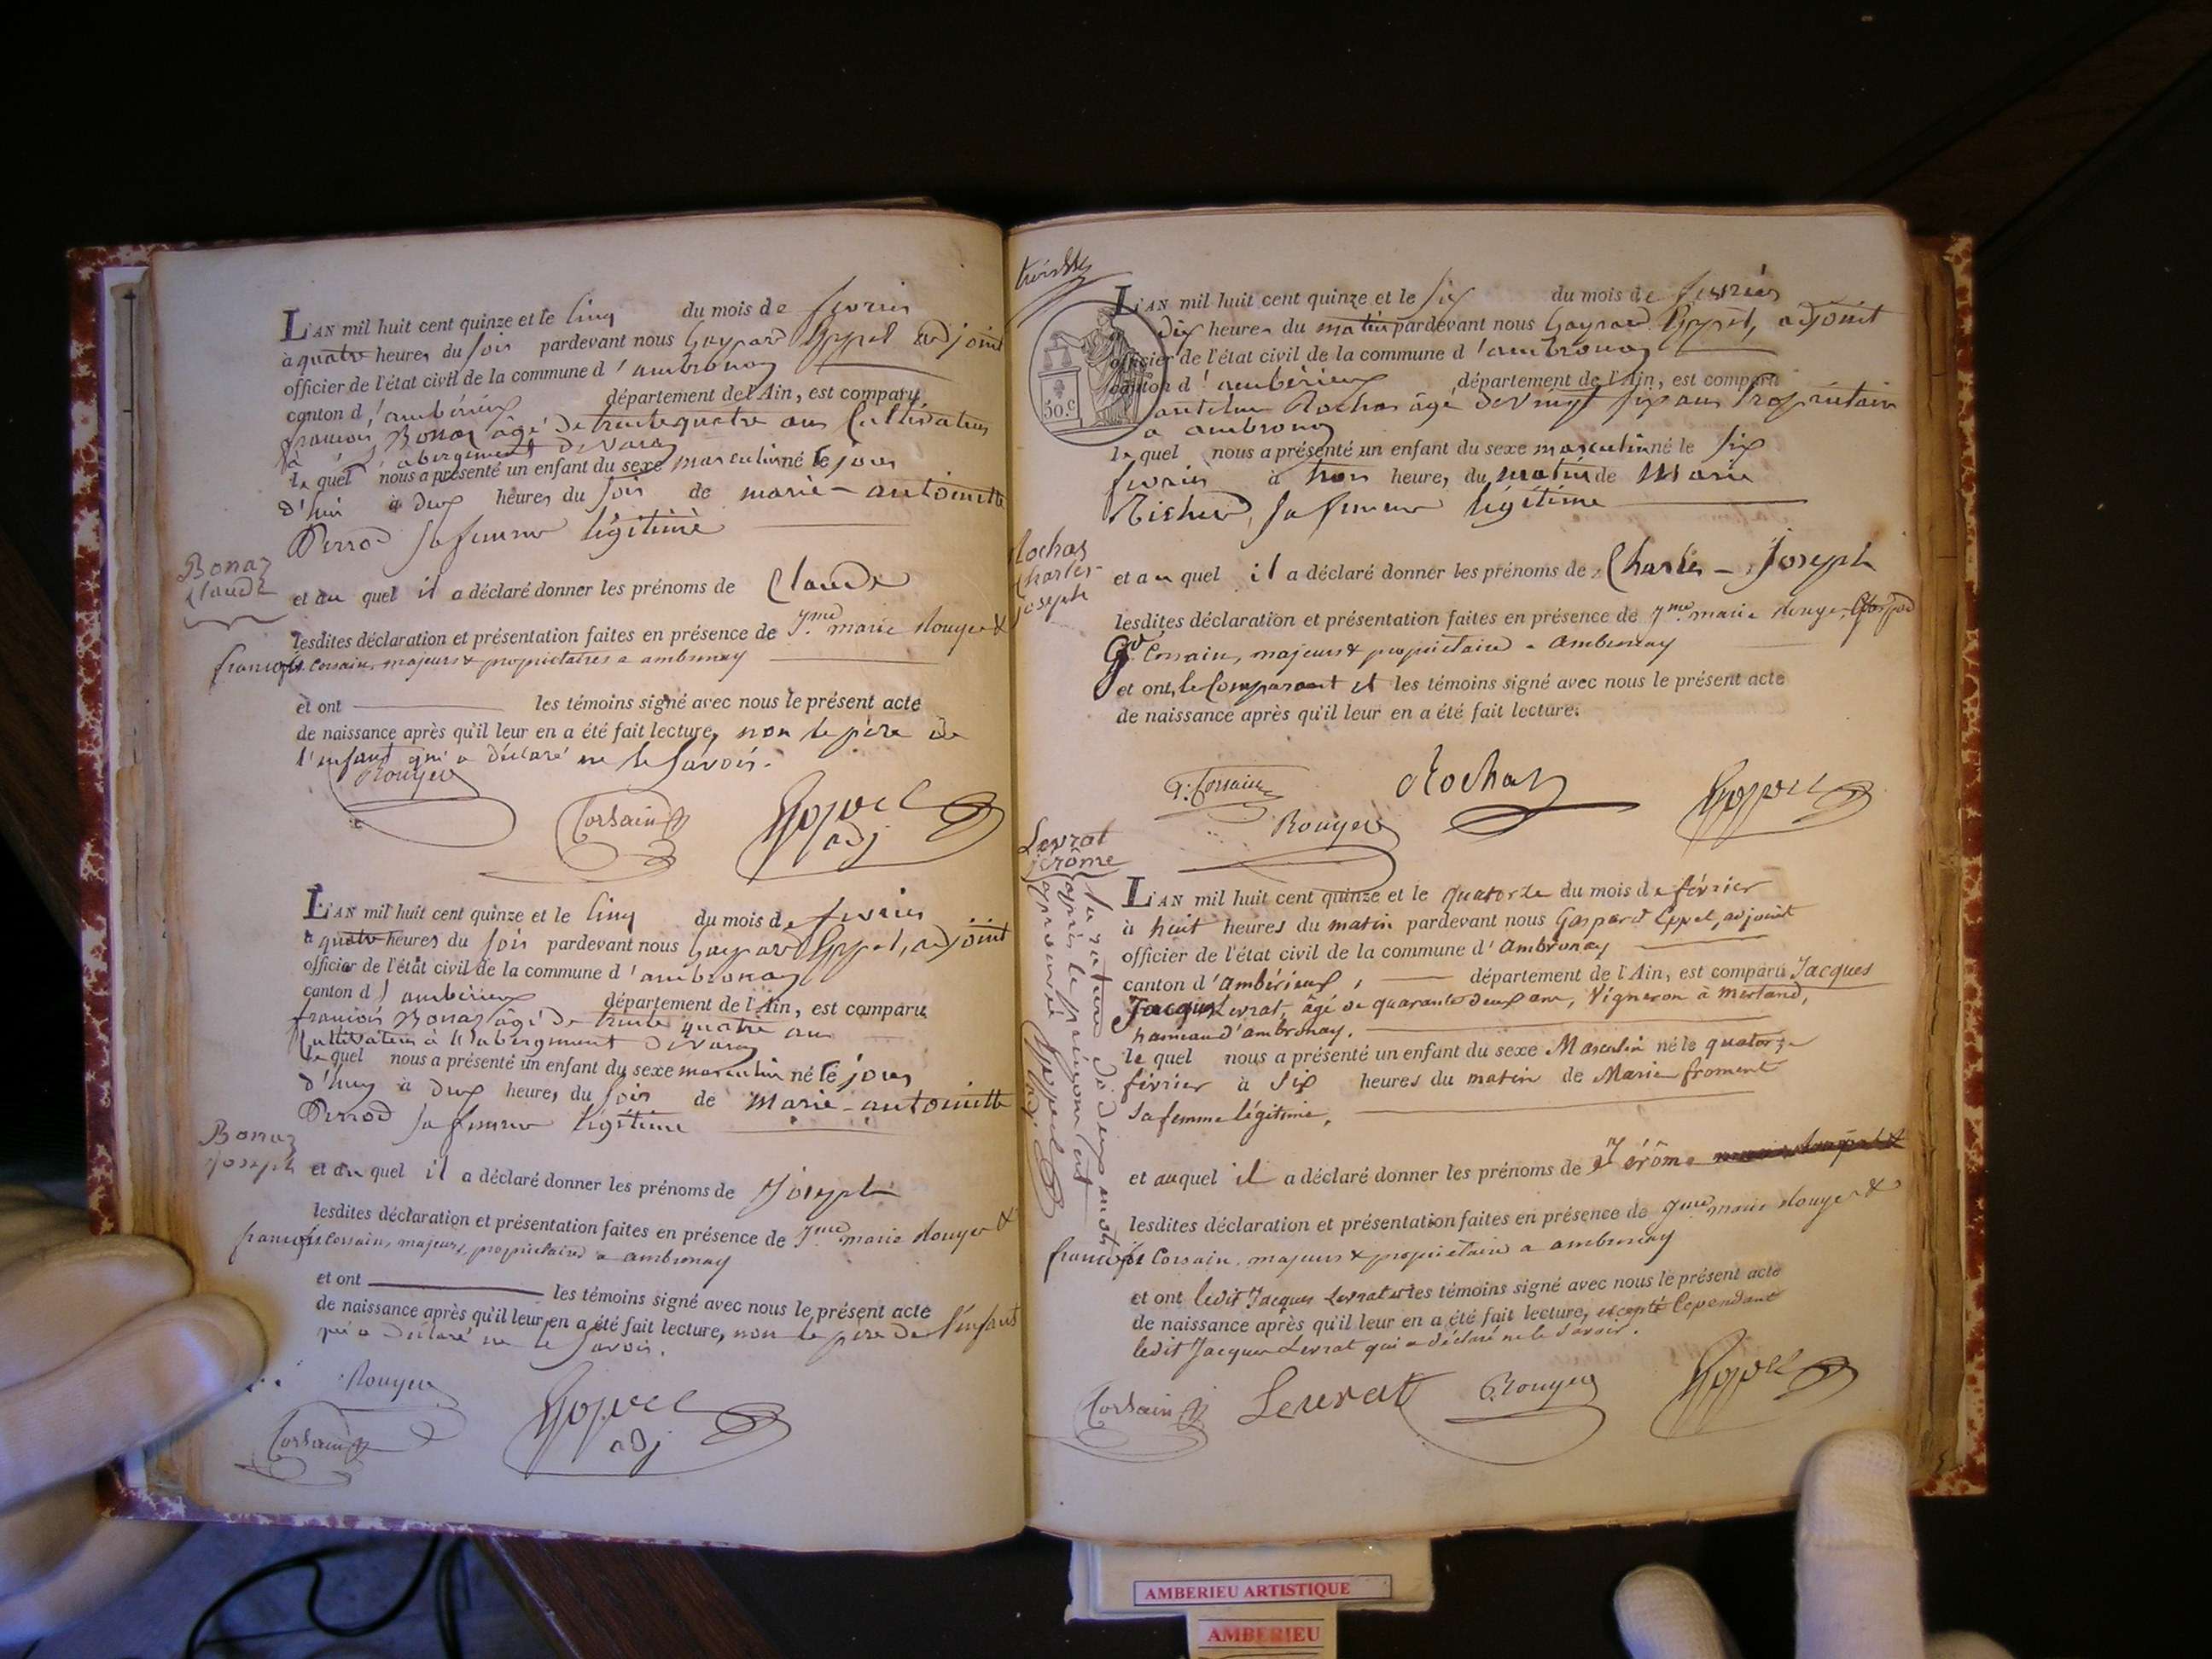 L'AN mil huit cent quinze et le cinq du mois de fevrier
à quatre heures du soir pardevant nous Gaspard Eppel adjoint
officier de l'état civil de la commune d'ambronay
canton d'ambérieux département de l'Ain, est comparu
francois Bonaz âgé de trente quatre ans Cultivateur
à l'abergement de varey
le quel nous a présenté un enfant du sexe masculin né le jour
d'hui à deux heures du soir de marie-antoinette
Perrod sa femme légitime
Bonaz
Claude
et au quel il a déclaré donner les prénoms de Claude
lesdites déclaration et présentation faites en présence de marie Rouyer &
francois Corsain, majeurs & propriétaires a ambronay
et ont les témoins signé avec nous le présent acte
de naissance après qu'il leur en a été fait lecture, non le père de
l'enfant qui a déclaré ne le savoir.
Rouyer
Corsain
Eppel
adj
L'AN mil huit cent quinze et le cinq du mois de fevrier
à quatre heures du soir pardevant nous Gaspard Eppel, adjoint
officier de l'état civil de la commune d'ambronay
canton d'ambérieux département de l'Ain, est comparu
francois Bonaz âgé de trente quatre ans
Cultivateur à l'abergement de varey
le quel nous a présenté un enfant du sexe masculin né le jour
d'huy à deux heures du soir de Marie-antoinette
Perrod sa femme légitime
Bonaz
Joseph
et au quel il a déclaré donner les prénoms de Joseph
lesdites déclaration et présentation faites en présence de marie Rouyer &
francois Corsain, majeurs, propriétaires a ambronay
et ont les témoins signé avec nous le présent acte
de naissance après qu'il leur en a été fait lecture, non le père de l'enfant
qui a déclaré ne le savoir.
Rouyer
Corsain
Eppel
adj
50.c
L'AN mil huit cent quinze et le six du mois de fevrier
dix heures du matin pardevant nous Gaspard Eppel, adjoint
officier de l'état civil de la commune d'ambronay
canton d'ambérieux département de l'Ain, est comparu
antelme Rochas âgé de vingt six ans Propriétaire
a ambronay
le quel nous a présenté un enfant du sexe masculin né le six
fevrier à trois heures du matin de Marie
sa femme légitime
Rochas
Charles-
Joseph
et au quel il a déclaré donner les prénoms de Charles - Joseph
lesdites déclaration et présentation faites en présence de marie Rouyer
Corsain, majeurs & propriétaires a ambronay
et ont, le Comparant et les témoins signé avec nous le présent acte
de naissance après qu'il leur en a été fait lecture.
Corsain
Rochas
Rouyer
Eppel
Levrat
jérôme
la rature de deux mots
après le prénom est
approuvée
Eppel adj.
L'AN mil huit cent quinze et le quatorze du mois de février
à huit heures du matin pardevant nous Gaspard Eppel, adjoint
officier de l'état civil de la commune d'Ambronay
canton d'Ambérieux, département de l'Ain, est comparu Jacques
Jacques Levrat, âgé de quarante deux ans, Vigneron à Merland,
hameau d'ambronay.
le quel nous a présenté un enfant du sexe Masculin né le quatorze
février à six heures du matin de Marie froment
sa femme légitime.
et auquel il a déclaré donner les prénoms de Jérôme
lesdites déclaration et présentation faites en présence de marie Rouyer &
francois Corsain, majeurs & propriétaires a ambronay
et ont ledit Jacques Levrat et les témoins signé avec nous le présent acte
de naissance après qu'il leur en a été fait lecture, excepté Cependant
ledit Jacques Levrat qui a déclaré ne le savoir.
Corsain
Levrat
Rouyer
Eppel
AMBERIEU ARTISTIQUE
AMBERIEU